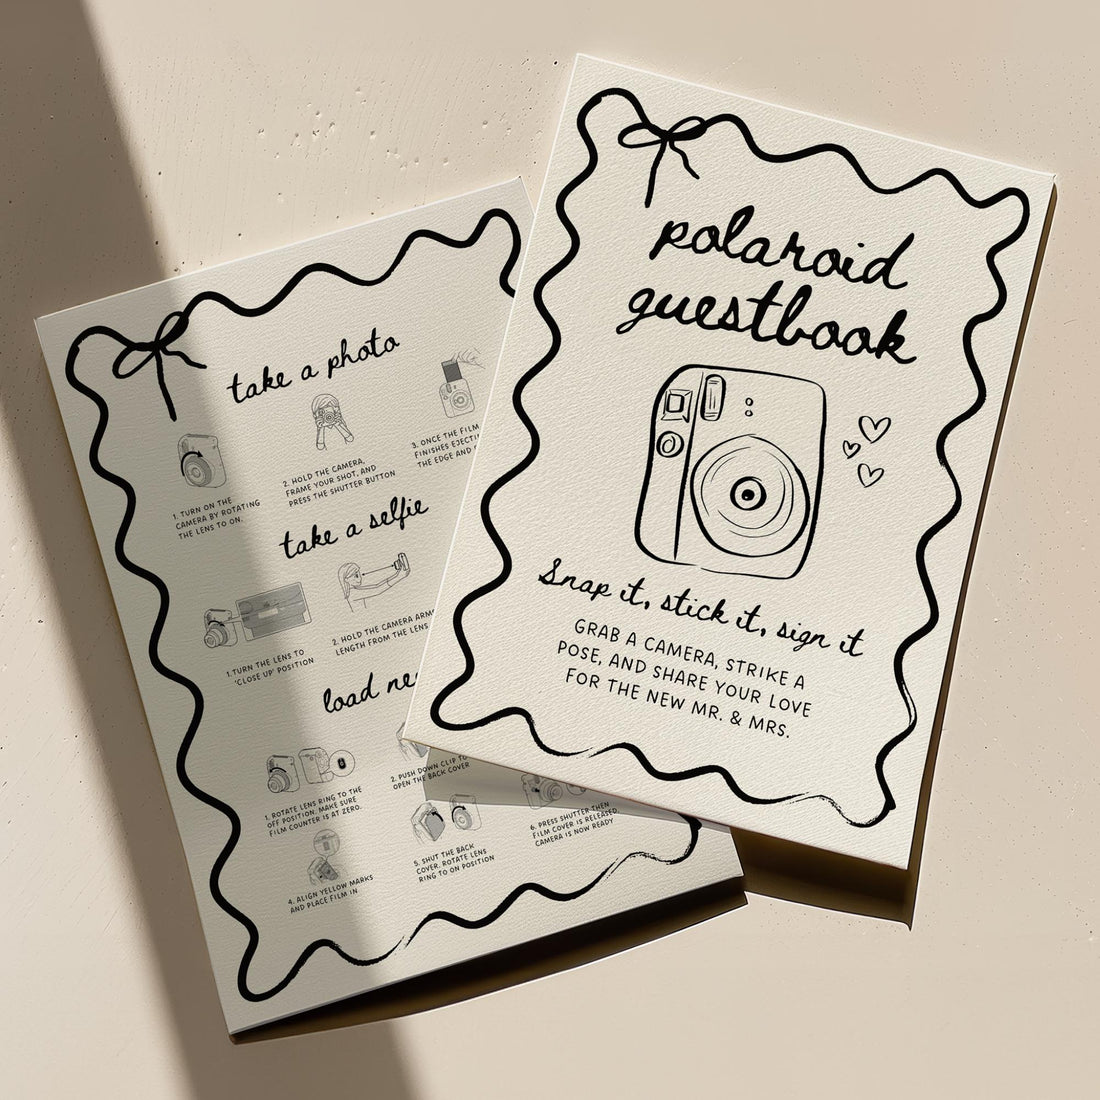 polaroid
guestbook
Snap it, stick it, sign it
GRAB A CAMERA, STRIKE A
POSE, AND SHARE YOUR LOVE
FOR THE NEW MR. & MRS.
take a photo
1. TURN ON THE
CAMERA BY ROTATING
THE LENS TO ON.
2. HOLD THE CAMERA,
FRAME YOUR SHOT, AND
PRESS THE SHUTTER BUTTON
3. ONCE THE FILM
FINISHES EJECTI
THE EDGE AND
take a selfie
1.TURN THE LENS TO
'CLOSE UP' POSITION
2. HOLD THE CAMERA ARM
LENGTH FROM THE LENS
load ne
1. ROTATE LENS RING TO THE
OFF POSITION. MAKE SURE
FILM COUNTER IS AT ZERO.
2. PUSH DOWN CLIP TO
OPEN THE BACK COVER
4. ALIGN YELLOW MARKS
AND PLACE FILM IN
5. SHUT THE BACK
COVER. ROTATE LENS
RING TO ON POSITION
6. PRESS SHUTTER THEN
FILM COVER IS RELEASED.
CAMERA IS NOW READY